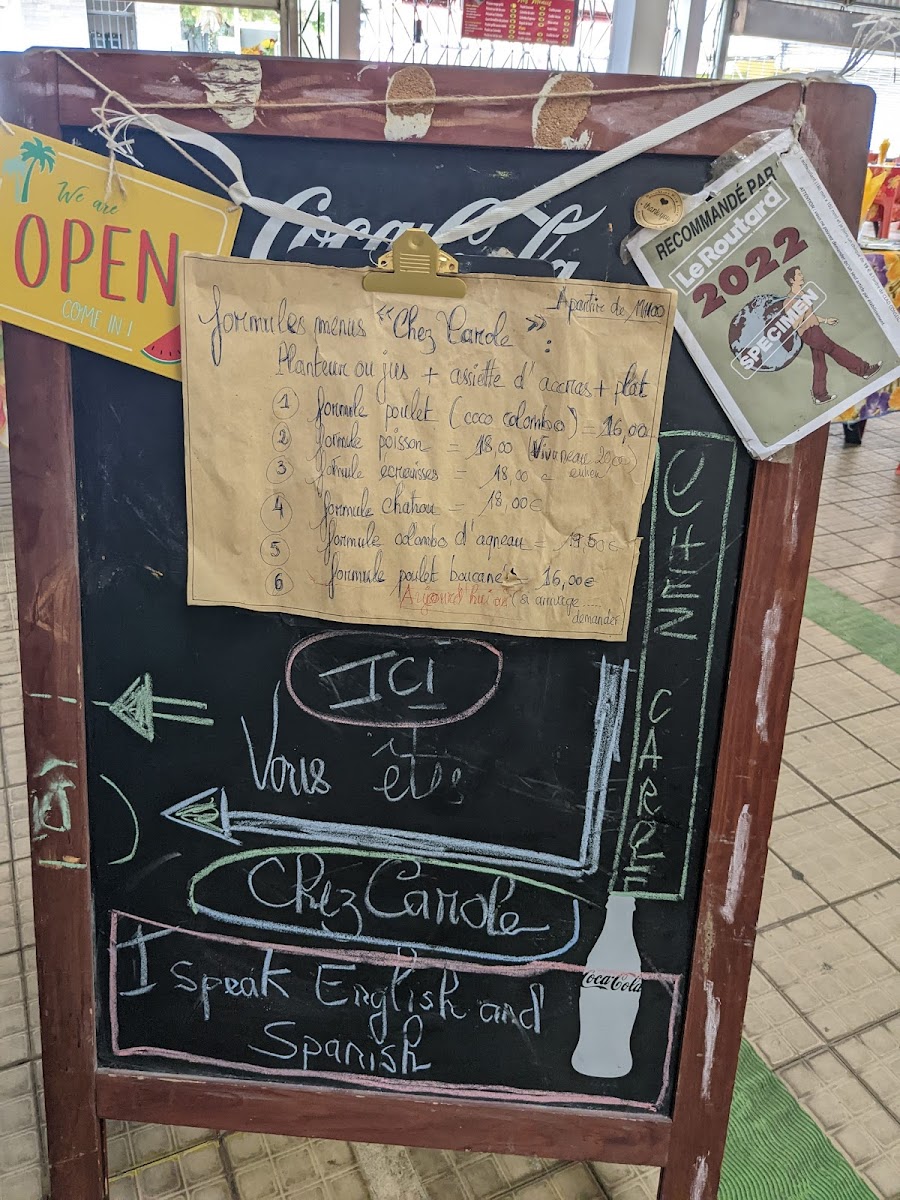 We are
OPEN
COME IN!
Coca-Cola
thank you
RECOMMANDÉ PAR
Le Routard
2022
SPECIMEN
A partire de 11H00
formules menus "Chez Carole" :
Planteur ou jus + assiette d'accras + plat
1 formule poulet (coco colombo) = 16,00
2 formule poisson = 18,00 (Vivaneau 20,00)
3 formule ecrevisses = 18,00
4 formule chatrou = 18,00€
5 formule colombo d'agneau = 19,50€
6 formule poulet boucané = 16,00€
Aujourd'hui (si arrivage....
demander
CHEZ CAROLE
ICI
Vous êtes
Chez Carole
I speak English and
Spanish
Coca-Cola